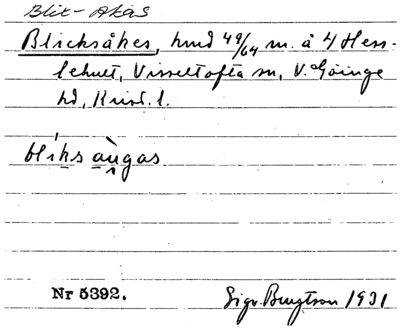 Blix-Åkes
Blicksåkes, hmd 49/64 m. å 4 Hess-
lehult, Visseltofta sn, V. Göinge
hd, Krist. l.
blíks àu̯gas
Nr 5392.
Sigv. Bengtson 1931